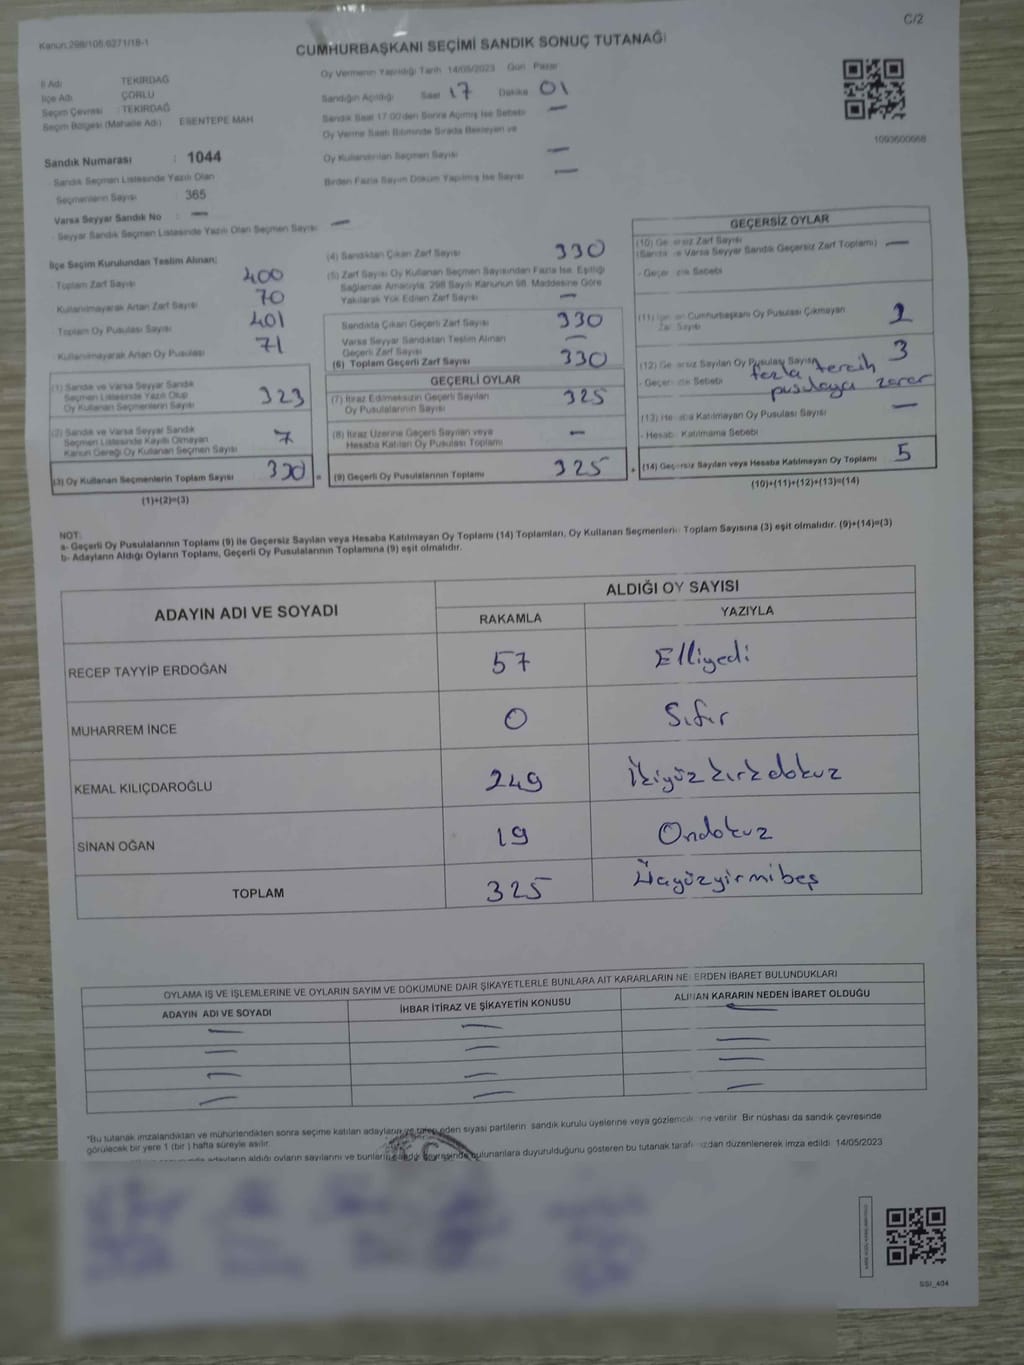 C/2
Kanun:298/105.6271/18-1
CUMHURBAŞKANI SEÇİMİ SANDIK SONUÇ TUTANAĞI
İl Adı TEKİRDAĞ
İlçe Adı ÇORLU
Seçim Çevresi : TEKİRDAĞ
Seçim Bölgesi (Mahalle Adı) ESENTEPE MAH
Oy Vermenin Yapıldığı Tarih 14/05/2023 Gün Pazar
Sandığın Açıldığı Saat 17 Dakika 01
Sandık Saat 17:00'den Sonra Açılmış İse Sebebi —
Oy Verme Saati Bitiminde Sırada Bekleyen ve
Oy Kullandırılan Seçmen Sayısı —
Birden Fazla Sayım Döküm Yapılmış İse Sayısı —
1093600668
Sandık Numarası : 1044
Sandık Seçmen Listesinde Yazılı Olan
Seçmenlerin Sayısı : 365
Varsa Seyyar Sandık No : —
- Seyyar Sandık Seçmen Listesinde Yazılı Olan Seçmen Sayısı —
İlçe Seçim Kurulundan Teslim Alınan;
- Toplam Zarf Sayısı 400
Kullanılmayarak Artan Zarf Sayısı 70
- Toplam Oy Pusulası Sayısı 401
- Kullanılmayarak Artan Oy Pusulası 71
(1) Sandık ve Varsa Seyyar Sandık
Seçmen Listesinde Yazılı Olup
Oy Kullanan Seçmenlerin Sayısı 323
(2) Sandık ve Varsa Seyyar Sandık
Seçmen Listesinde Kayıtlı Olmayan
Kanun Gereği Oy Kullanan Seçmen Sayısı 7
(3) Oy Kullanan Seçmenlerin Toplam Sayısı 330 =
(1)+(2)=(3)
(4) Sandıktan Çıkan Zarf Sayısı 330
(5) Zarf Sayısı Oy Kullanan Seçmen Sayısından Fazla İse, Eşitliği
Sağlamak Amacıyla, 298 Sayılı Kanunun 98. Maddesine Göre
Yakılarak Yok Edilen Zarf Sayısı —
Sandıkta Çıkan Geçerli Zarf Sayısı 330
Varsa Seyyar Sandıktan Teslim Alınan
Geçerli Zarf Sayısı —
(6) Toplam Geçerli Zarf Sayısı 330
GEÇERLİ OYLAR
(7) İtiraz Edilmeksizin Geçerli Sayılan
Oy Pusulalarının Sayısı 325
(8) İtiraz Üzerine Geçerli Sayılan veya
Hesaba Katılan Oy Pusulası Toplamı —
(9) Geçerli Oy Pusulalarının Toplamı 325 +
GEÇERSİZ OYLAR
(10) Zarf Sayısı
Varsa Seyyar Sandık Geçersiz Zarf Toplamı) —
Sebebi
(11) Cumhurbaşkanı Oy Pusulası Çıkmayan
Sayısı 2
(12) Sayılan Oy Pusulası Sayısı 3
- Sebebi fazla tercih
pusulaya zarar
(13) Katılmayan Oy Pusulası Sayısı —
- Hesaba Katılmama Sebebi
(14) Geçersiz Sayılan veya Hesaba Katılmayan Oy Toplamı 5
(10)+(11)+(12)+(13)=(14)
NOT:
a- Geçerli Oy Pusulalarının Toplamı (9) ile Geçersiz Sayılan veya Hesaba Katılmayan Oy Toplamı (14) Toplamları, Oy Kullanan Seçmenlerin Toplam Sayısına (3) eşit olmalıdır. (9)+(14)=(3)
b- Adayların Aldığı Oyların Toplamı, Geçerli Oy Pusulalarının Toplamına (9) eşit olmalıdır.
ADAYIN ADI VE SOYADI
ALDIĞI OY SAYISI
RAKAMLA YAZIYLA
RECEP TAYYİP ERDOĞAN 57 Elliyedi
MUHARREM İNCE 0 Sıfır
KEMAL KILIÇDAROĞLU 249 İkiyüzkırkdokuz
SİNAN OĞAN 19 Ondokuz
TOPLAM 325 Üçyüzyirmibeş
OYLAMA İŞ VE İŞLEMLERİNE VE OYLARIN SAYIM VE DÖKÜMÜNE DAİR ŞİKAYETLERLE BUNLARA AİT KARARLARIN NELERDEN İBARET BULUNDUKLARI
ADAYIN ADI VE SOYADI İHBAR İTİRAZ VE ŞİKAYETİN KONUSU ALINAN KARARIN NEDEN İBARET OLDUĞU
— — —
— — —
— — —
— — —
*Bu tutanak imzalandıktan ve mühürlendikten sonra seçime katılan adayların ve talep eden siyasi partilerin sandık kurulu üyelerine veya gözlemcilerine verilir. Bir nüshası da sandık çevresinde
görülecek bir yere 1 (bir) hafta süreyle asılır.
adayların aldığı oyların sayılarını ve bunların sandık çevresinde bulunanlara duyurulduğunu gösteren bu tutanak tarafımızdan düzenlenerek imza edildi. 14/05/2023
SSI_404